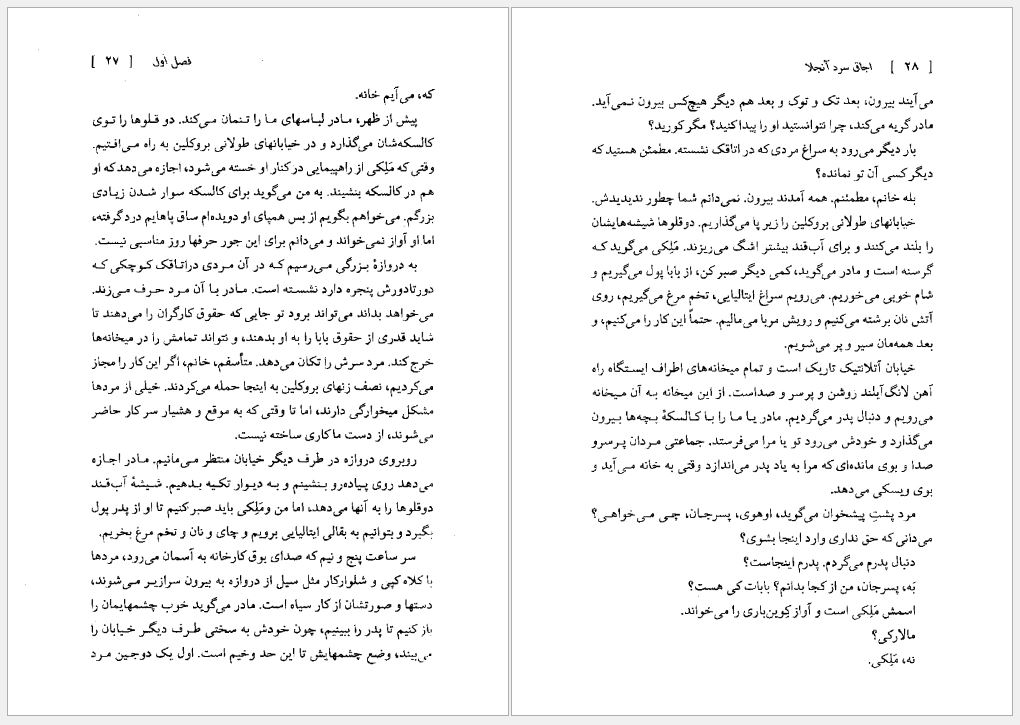 فصل اول [ ۲۷ ]
که، می‌آیم خانه.
پیش از ظهر، مادر لباسهای ما را تنمان می‌کند. دو قلوها را توی
کالسکه‌شان می‌گذارد و در خیابانهای طولانی بروکلین به راه می‌افتیم.
وقتی که مَلِکی از راهپیمایی در کنار او خسته می‌شود، اجازه می‌دهد که او
هم در کالسکه بنشیند. به من می‌گوید برای کالسکه سوار شدن زیادی
بزرگم. می‌خواهم بگویم از بس همپای او دویده‌ام ساق پاهایم درد گرفته،
اما او آواز نمی‌خواند و می‌دانم برای این جور حرفها روز مناسبی نیست.
به دروازهٔ بزرگی می‌رسیم که در آن مردی دراتاقک کوچکی که
دورتادورش پنجره دارد نشسته است. مادر با آن مرد حرف می‌زند.
می‌خواهد بداند می‌تواند برود تو جایی که حقوق کارگران را می‌دهند تا
شاید قدری از حقوق بابا را به او بدهند، و نتواند تمامش را در میخانه‌ها
خرج کند. مرد سرش را تکان می‌دهد. متأسفم، خانم، اگر این کار را مجاز
می‌کردیم، نصف زنهای بروکلین به اینجا حمله می‌کردند. خیلی از مردها
مشکل میخوارگی دارند، اما تا وقتی که به موقع و هشیار سر کار حاضر
می‌شوند، از دست ما کاری ساخته نیست.
روبروی دروازه در طرف دیگر خیابان منتظر می‌مانیم. مادر اجازه
می‌دهد روی پیاده‌رو بنشینم و به دیوار تکیه بدهیم. شیشهٔ آب‌قند
دوقلوها را به آنها می‌دهد، اما من ومَلِکی باید صبر کنیم تا او از پدر پول
بگیرد و بتوانیم به بقالی ایتالیایی برویم و چای و نان و تخم مرغ بخریم.
سر ساعت پنج و نیم که صدای بوق کارخانه به آسمان می‌رود، مردها
با کلاه کپی و شلوارکار مثل سیل از دروازه به بیرون سرازیر می‌شوند،
دستها و صورتشان از کار سیاه است. مادر می‌گوید خوب چشمهایمان را
باز کنیم تا پدر را ببینیم، چون خودش به سختی طرف دیگر خیابان را
می‌بیند، وضع چشمهایش تا این حد وخیم است. اول یک دوجین مرد
[ ۲۸ ] اجاق سرد آنجلا
می‌آیند بیرون، بعد تک و توک و بعد هم دیگر هیچ‌کس بیرون نمی‌آید.
مادر گریه می‌کند، چرا نتوانستید او را پیدا کنید؟ مگر کورید؟
بار دیگر می‌رود به سراغ مردی که در اتاقک نشسته. مطمئن هستید که
دیگر کسی آن تو نمانده؟
بله خانم، مطمئنم. همه آمدند بیرون. نمی‌دانم شما چطور ندیدیدش.
خیابانهای طولانی بروکلین را زیر پا می‌گذاریم. دوقلوها شیشه‌هایشان
را بلند می‌کنند و برای آب‌قند بیشتر اشگ می‌ریزند. مَلِکی می‌گوید که
گرسنه است و مادر می‌گوید، کمی دیگر صبر کن، از بابا پول می‌گیریم و
شام خوبی می‌خوریم. می‌رویم سراغ ایتالیایی، تخم مرغ می‌گیریم، روی
آتش نان برشته می‌کنیم و رویش مربا می‌مالیم. حتماً این کار را می‌کنیم، و
بعد همه‌مان سیر و پر می‌شویم.
خیابان آتلانتیک تاریک است و تمام میخانه‌های اطراف ایستگاه راه
آهن لانگ‌آیلند روشن و پرسر و صداست. از این میخانه به آن میخانه
می‌رویم و دنبال پدر می‌گردیم. مادر یا ما را با کالسکهٔ بچه‌ها بیرون
می‌گذارد و خودش می‌رود تو یا مرا می‌فرستد. جماعتی مردان پرسرو
صدا و بوی مانده‌ای که مرا به یاد پدر می‌اندازد وقتی به خانه می‌آید و
بوی ویسکی می‌دهد.
مرد پشتِ پیشخوان می‌گوید، اوهوی، پسرجان، چی می‌خواهی؟
می‌دانی که حق نداری وارد اینجا بشوی؟
دنبال پدرم می‌گردم. پدرم اینجاست؟
نَه، پسرجان، من از کجا بدانم؟ بابات کی هست؟
اسمش مَلِکی است و آواز کِوین‌باری را می‌خواند.
مالارکی؟
نه، مَلِکی.